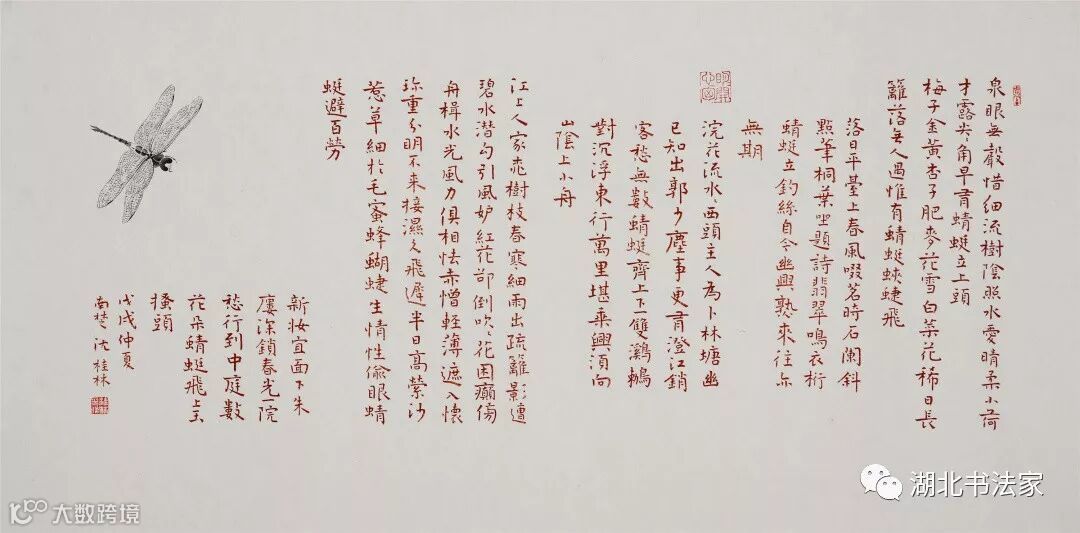 泉眼無聲惜細流樹陰照水愛晴柔小荷
才露尖尖角早有蜻蜓立上頭
梅子金黃杏子肥麥花雪白菜花稀日長
籬落無人過惟有蜻蜓蛺蝶飛
落日平臺上春風啜茗時石闌斜
點筆桐葉坐題詩翡翠鳴衣桁
蜻蜓立釣絲自今幽興熟來往亦
無期
浣花流水水西頭主人為卜林塘幽
已知出郭少塵事更有澄江銷
客愁無數蜻蜓齊上下一雙鸂鶒
對沉浮東行萬里堪乘興須向
山陰上小舟
江上人家桃樹枝春寒細雨出疏籬影遭
碧水潛勾引風妒紅花卻倒吹吹花困癲傍
舟楫水光風力俱相怯赤憎輕薄遮入懷
珍重分明不來接濕久飛遲半日高縈沙
惹草細於毛蜜蜂蝴蝶生情性偷眼蜻
蜓避百勞
新妝宜面下朱
樓深鎖春光一院
愁行到中庭數
花朵蜻蜓飛上玉
搔頭
戊戌仲夏
南楚沈桂林
湖北书法家
大数跨境